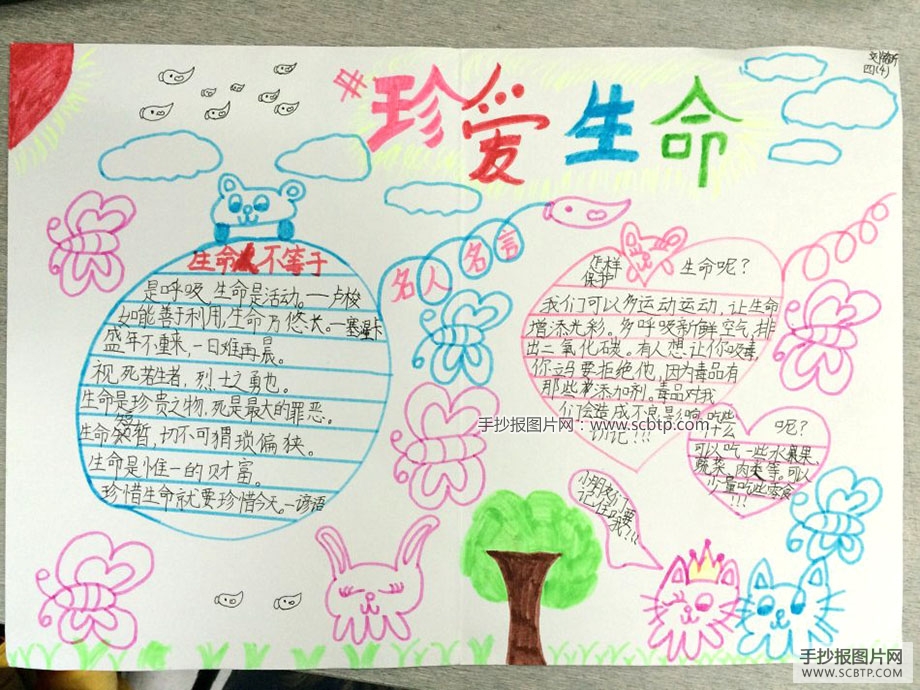 四(4)
珍爱生命
名人名言
生命不等于
是呼吸,生命是活动。—卢梭
如能善于利用,生命乃悠长。—塞涅卡
盛年不重来,一日难再晨。
视死若生者,烈士之勇也。
生命是珍贵之物,死是最大的罪恶。
生命短暂,切不可猥琐偏狭。
生命是惟一的财富。
珍惜生命就要珍惜今天。—谚语
怎样
保护
生命呢?
我们可以多运动运动,让生命
增添光彩。多呼吸新鲜空气,排
出二氧化碳。有人想让你吸毒,
你立马要拒绝他,因为毒品有
那些添加剂。毒品对我
们会造成不良影响
切记!!!
手抄报图片网:www.scbtp.com
吃些
什么
呢?
可以吃一些水果,
蔬菜、肉类等。可以
少量吃些零食
!!!
小朋友们
记住
我!!!
手抄报图片网
WWW.SCBTP.COM